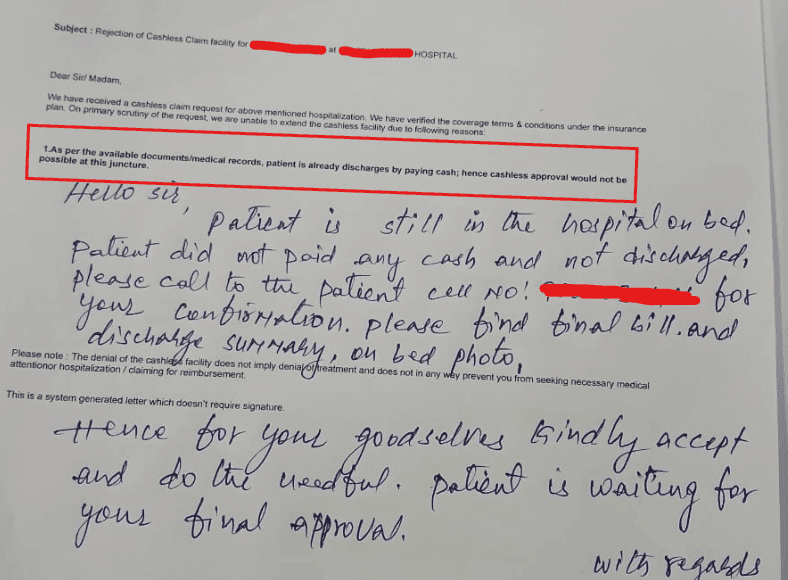 Subject : Rejection of Cashless Claim facility for at HOSPITAL
Dear Sir/ Madam,
We have received a cashless claim request for above mentioned hospitalization. We have verified the coverage terms & conditions under the insurance
plan. On primary scrutiny of the request, we are unable to extend the cashless facility due to following reasons:
1.As per the available documents/medical records, patient is already discharges by paying cash; hence cashless approval would not be
possible at this juncture.
Hello sir,
patient is still in the hospital on bed.
patient did not paid any cash and not discharged,
please call to the patient cell NO! for
your confirmation. please find final bill. and
discharge summary, on bed photo,
Please note : The denial of the cashless facility does not imply denial of treatment and does not in any way prevent you from seeking necessary medical
attentionor hospitalization / claiming for reimbursement.
This is a system generated letter which doesn't require signature.
Hence for your goodselves kindly accept
and do the needful. patient is waiting for
your final approval.
with regards